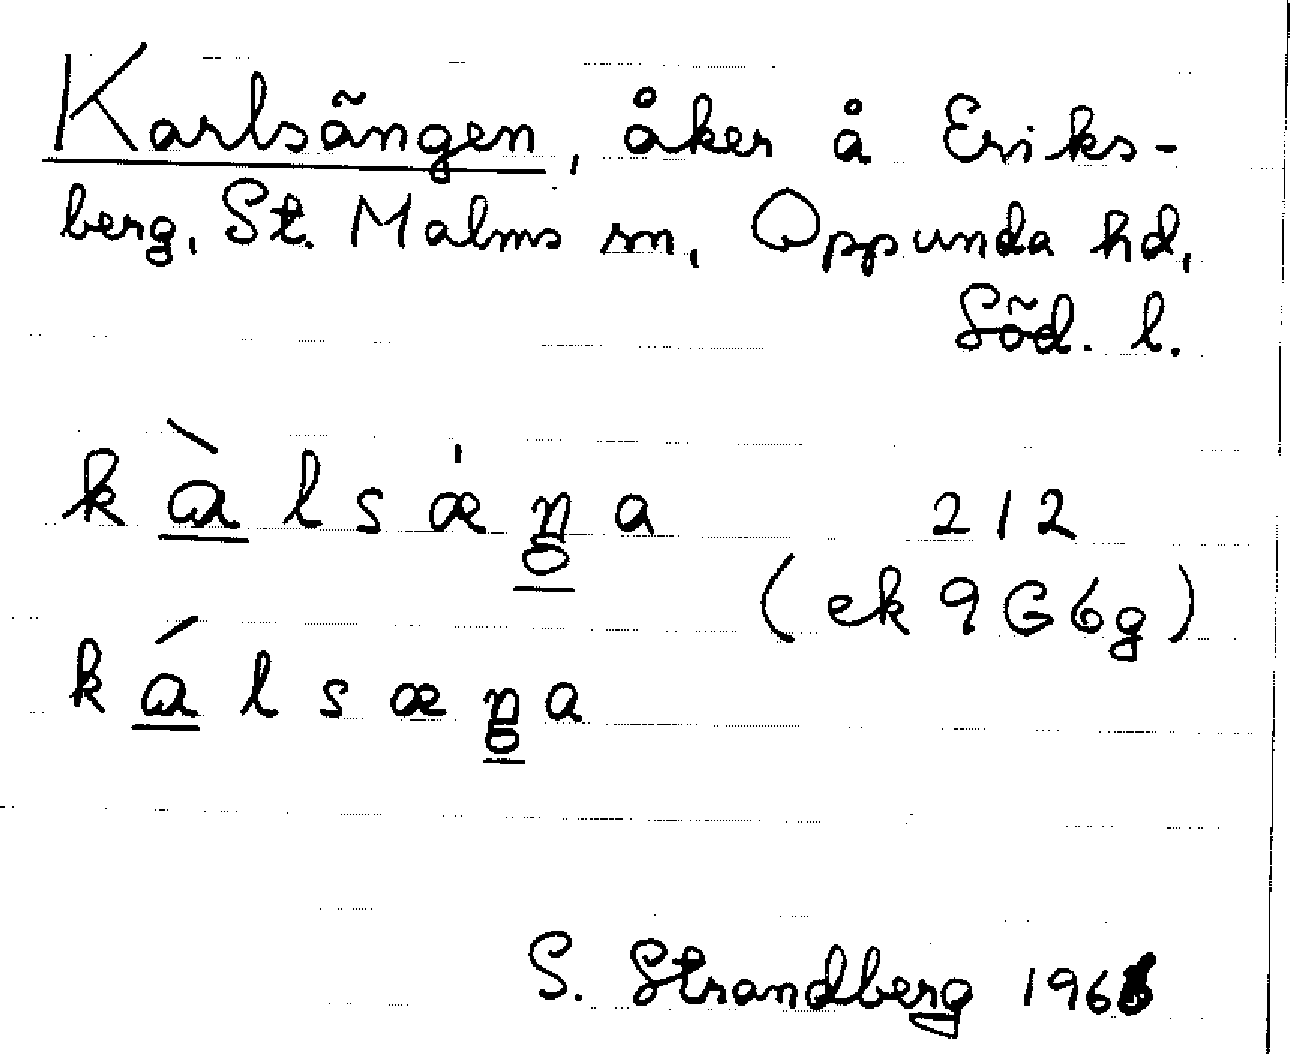 Karlsängen, åker å Eriks-
berg, St. Malms sn, Oppunda hd,
Söd. l.
kàlsæ̀ŋa 212
(ek 9G6g)
kálsæŋa
S. Strandberg 1966